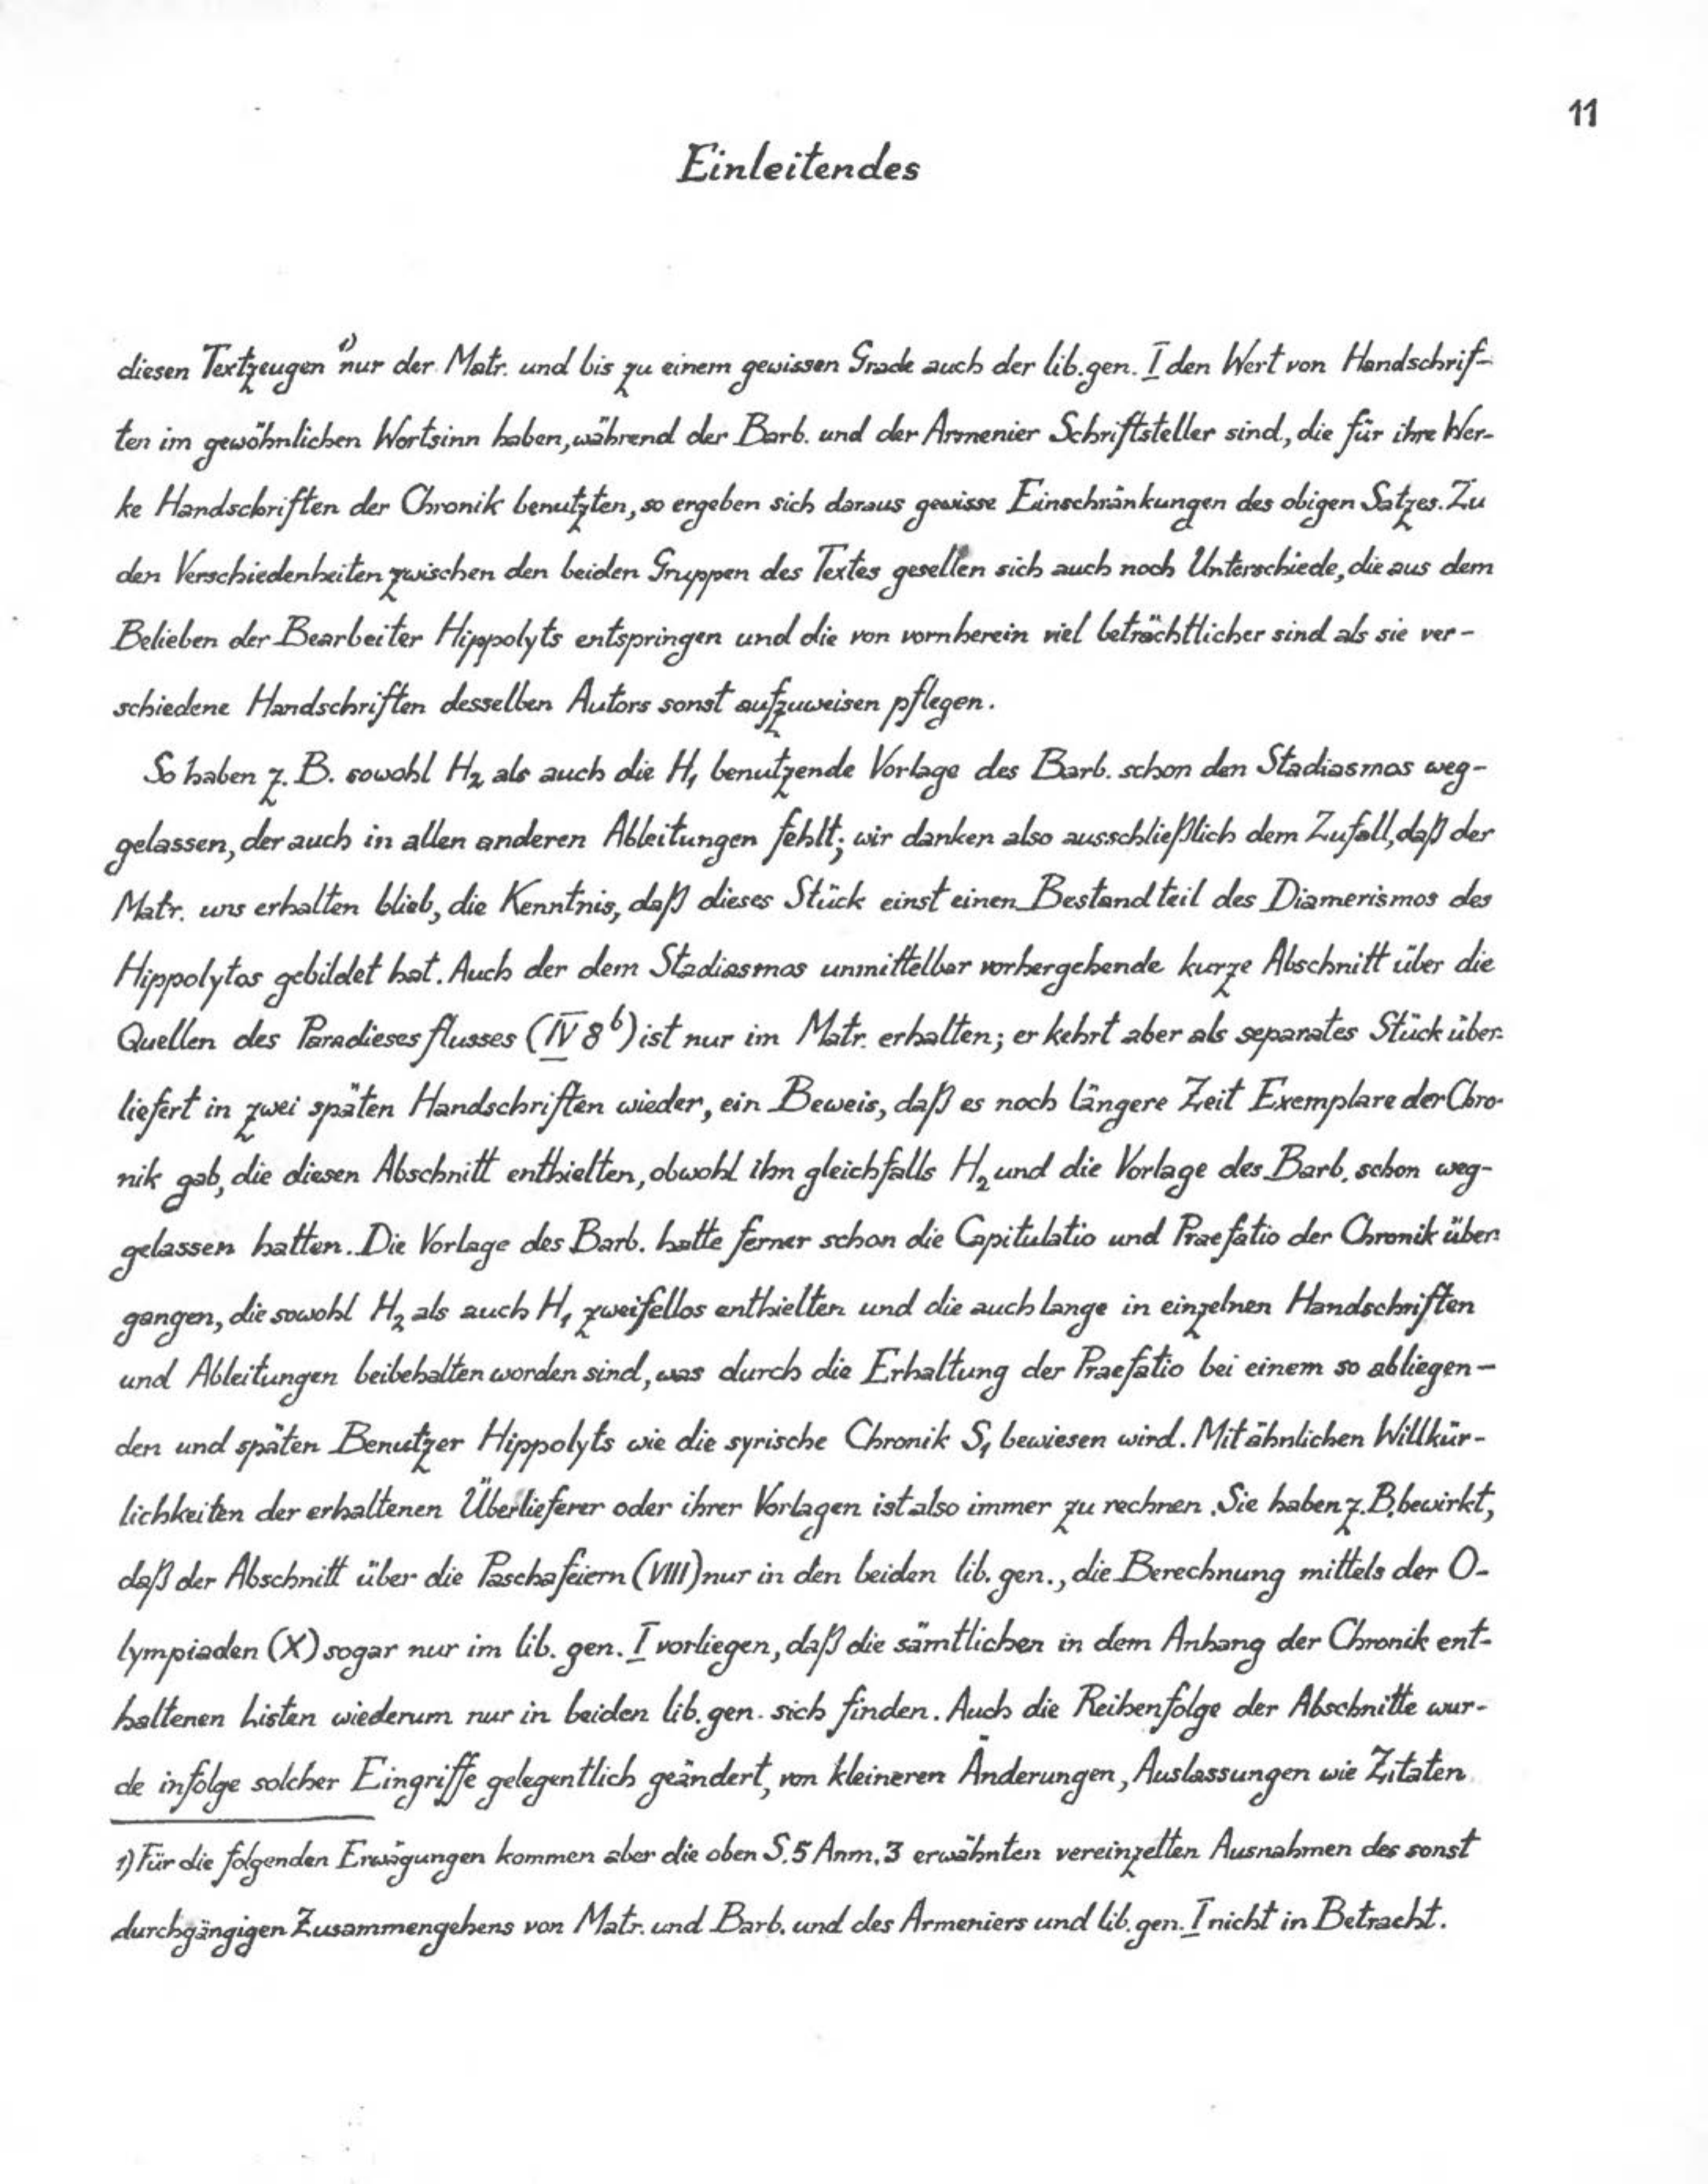 11
Einleitendes
diesen Textzeugen ¹⁾ nur der Matr. und bis zu einem gewissen Grade auch der lib. gen. I den Wert von Handschrif-
ten im gewöhnlichen Wortsinn haben, während der Barb. und der Armenier Schriftsteller sind, die für ihre Wer-
ke Handschriften der Chronik benutzten, so ergeben sich daraus gewisse Einschränkungen des obigen Satzes. Zu
den Verschiedenheiten zwischen den beiden Gruppen des Textes gesellen sich auch noch Unterschiede, die aus dem
Belieben der Bearbeiter Hippolyts entspringen und die von vornherein viel beträchtlicher sind als sie ver-
schiedene Handschriften desselben Autors sonst aufzuweisen pflegen.
So haben z. B. sowohl H₂ als auch die H₁ benutzende Vorlage des Barb. schon den Stadiasmos weg-
gelassen, der auch in allen anderen Ableitungen fehlt; wir danken also ausschließlich dem Zufall, daß der
Matr. uns erhalten blieb, die Kenntnis, daß dieses Stück einst einen Bestandteil des Diamerismos des
Hippolytos gebildet hat. Auch der dem Stadiasmos unmittelbar vorhergehende kurze Abschnitt über die
Quellen des Paradiesesflusses (IV 8ᵇ) ist nur im Matr. erhalten; er kehrt aber als separates Stück über-
liefert in zwei späten Handschriften wieder, ein Beweis, daß es noch längere Zeit Exemplare der Chro-
nik gab, die diesen Abschnitt enthielten, obwohl ihn gleichfalls H₂ und die Vorlage des Barb. schon weg-
gelassen hatten. Die Vorlage des Barb. hatte ferner schon die Capitulatio und Praefatio der Chronik über-
gangen, die sowohl H₂ als auch H₁ zweifellos enthielten und die auch lange in einzelnen Handschriften
und Ableitungen beibehalten worden sind, was durch die Erhaltung der Praefatio bei einem so abliegen-
den und späten Benutzer Hippolyts wie die syrische Chronik S₁ bewiesen wird. Mit ähnlichen Willkür-
lichkeiten der erhaltenen Überlieferer oder ihrer Vorlagen ist also immer zu rechnen. Sie haben z. B. bewirkt,
daß der Abschnitt über die Paschafeiern (VIII) nur in den beiden lib. gen., die Berechnung mittels der O-
lympiaden (X) sogar nur im lib. gen. I vorliegen, daß die sämtlichen in dem Anhang der Chronik ent-
haltenen Listen wiederum nur in beiden lib. gen. sich finden. Auch die Reihenfolge der Abschnitte wur-
de infolge solcher Eingriffe gelegentlich geändert, von kleineren Änderungen, Auslassungen wie Zitaten
1) Für die folgenden Erwägungen kommen aber die oben S. 5 Anm. 3 erwähnten vereinzelten Ausnahmen des sonst
durchgängigen Zusammengehens von Matr. und Barb. und des Armeniers und lib. gen. I nicht in Betracht.